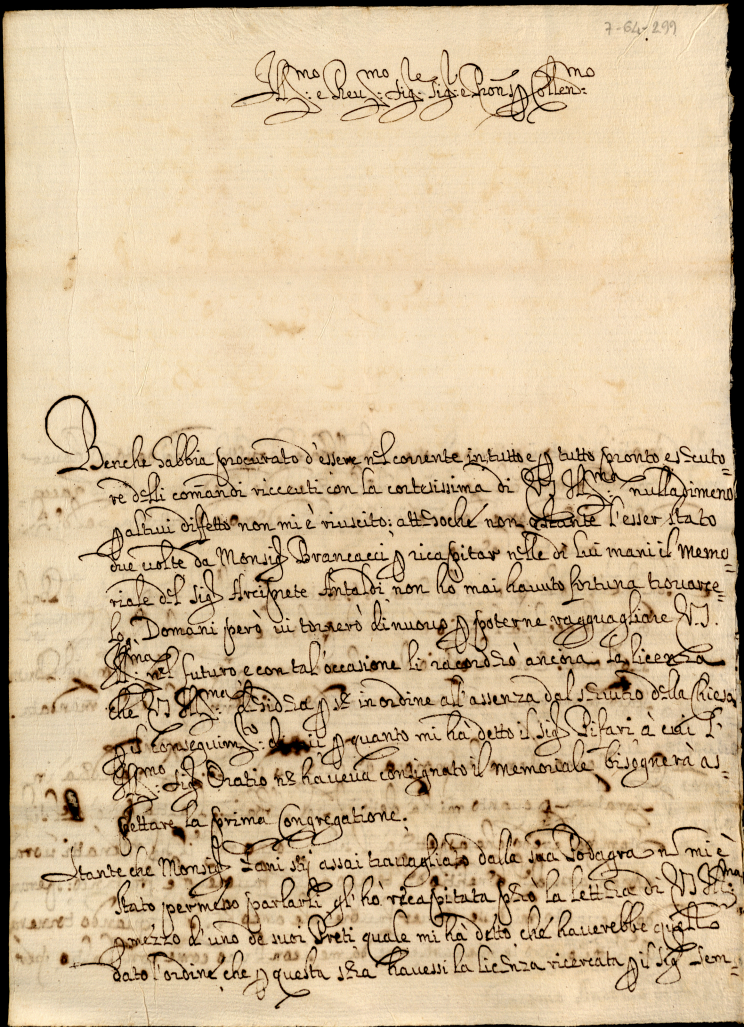 7-64-299
Ill:mo e Reu:mo Sig:re Sig:l e Pron Collen:mo
Benche habbia procurato d'essere nel corrente in tutto e p tutto pronto essecuto=
re delli comandi riceuti con la cortesissima di V.S. Ill:ma nulladimeno
p altrui difetto non mi è riuscito: attesoché non ostante l'esser stato
due volte da Monsig Brancacci p ricapitar nelle di lui mani il memo=
riale del Sig Arciprete Antaldi non ho mai hauuto fortuna trouarce=
lo. Domani però ui tornerò di nuouo p poterne ragguagliare V.S.
Ill:ma nel futuro e con tal'occasione li racorderò ancora la licenza
che V.S. Ill:ma desidera p se in ordine all'assenza dal seruitio della Chiesa,
p il conseguim:to di più p quanto mi hà detto il Sig Pifari à cui l'
Ill:mo Sig Oratio ne haueua consignato il memoriale bisognerà as=
pettare la prima Congregatione.
Stante che Monsig Fani stij assai trauagliato dalla sua Podagra non mi è
stato permesso parlarli gl'hò ricapitata però la lettera di V.S. Ill:ma
p mezzo d'uno de suoi Preti quale mi hà detto che hauerebbe quello
dato l'ordine che p questa sera hauessi la licenza ricercata p il Sig Sem=